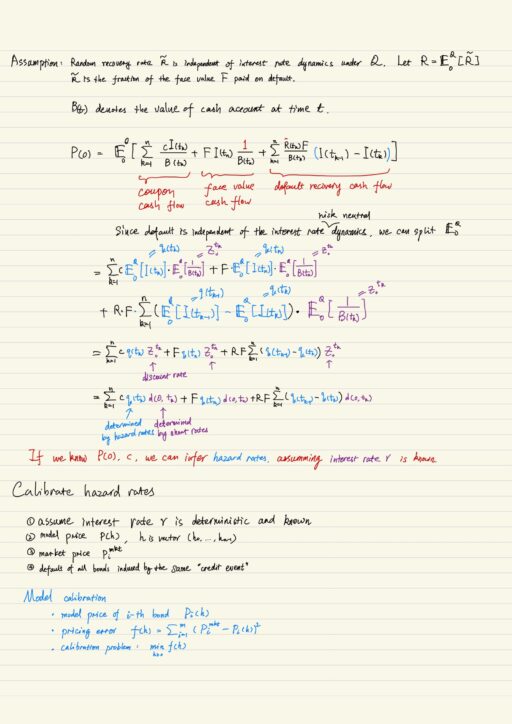 Assumption: Random recovery rate R̃ is independent of interest rate dynamics under Q. Let R = E₀^Q[R̃]
R̃ is the fraction of the face value F paid on default.
B(t) denotes the value of cash account at time t.
P(0) = E₀^Q [ Σ_{k=1}^n cI(t_k)/B(t_k) + F I(t_n) 1/B(t_n) + Σ_{k=1}^n R̃(t_k)F/B(t_k) (I(t_{k-1}) - I(t_k)) ]
coupon cash flow face value cash flow default recovery cash flow
risk neutral
Since default is independent of the interest rate dynamics, we can split E₀^Q
= q(t_k) = Z₀^{t_k} = q(t_n) = Z₀^{t_n}
= Σ_{k=1}^n c E₀^Q[I(t_k)] · E₀^Q[1/B(t_k)] + F · E₀^Q[I(t_n)] · E₀^Q[1/B(t_n)]
= q(t_{k-1}) = q(t_k) = Z₀^{t_k}
+ R·F· Σ_{k=1}^n (E₀^Q[I(t_{k-1})] - E₀^Q[I(t_k)]) · E₀^Q[1/B(t_k)]
= Σ_{k=1}^n c q(t_k) Z₀^{t_k} + F q(t_n) Z₀^{t_n} + RF Σ_{k=1}^n (q(t_{k-1}) - q(t_k)) Z₀^{t_k}
discount rate
= Σ_{k=1}^n c q(t_k) d(0, t_k) + F q(t_n) d(0, t_n) + RF Σ_{k=1}^n (q(t_{k-1}) - q(t_k)) d(0, t_k)
determined by hazard rates determined by short rates
If we know P(0), c, we can infer hazard rates, assumming interest rate r is known
Calibrate hazard rates
① assume interest rate r is deterministic and known
② model price P(h), h is vector (h₀, ..., h_{n-1})
③ market price P_i^{mkt}
④ default of all bonds induced by the same "credit event"
Model calibration
· model price of i-th bond P_i(h)
· pricing error f(h) = Σ_{i=1}^m (P_i^{mkt} - P_i(h))²
· calibration problem: min_{h≥0} f(h)